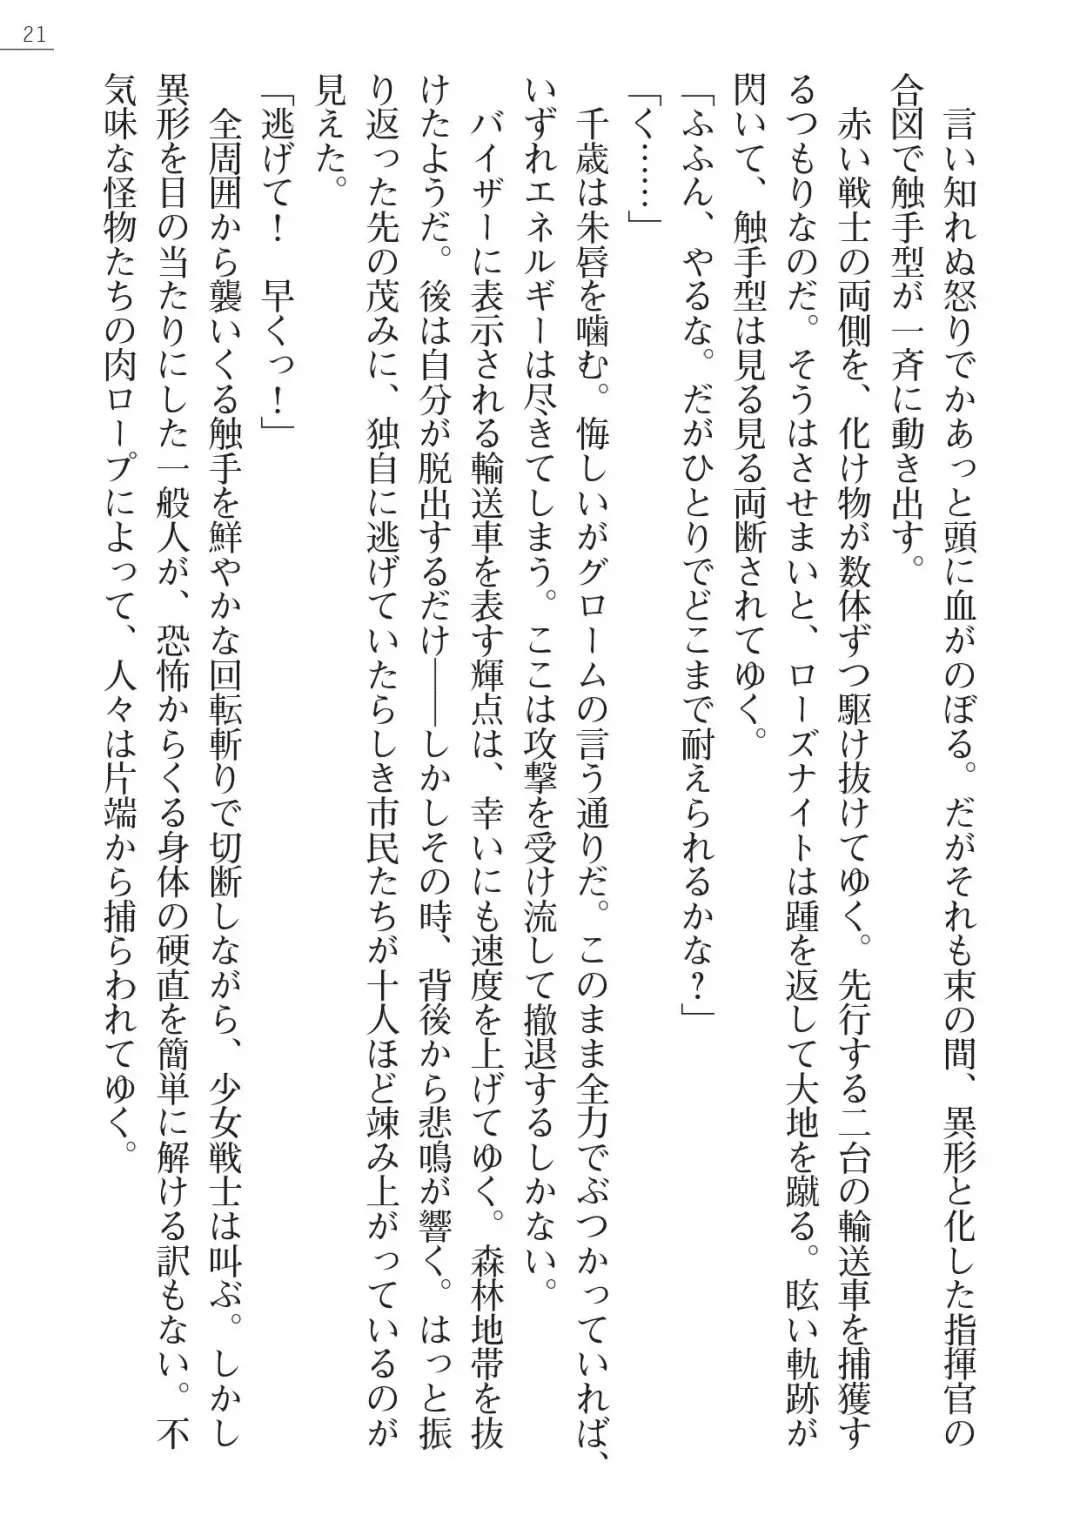 21
　言い知れぬ怒りでかあっと頭に血がのぼる。だがそれも束の間、異形と化した指揮官の
合図で触手型が一斉に動き出す。
　赤い戦士の両側を、化け物が数体ずつ駆け抜けてゆく。先行する二台の輸送車を捕獲す
るつもりなのだ。そうはさせまいと、ローズナイトは踵を返して大地を蹴る。眩い軌跡が
閃いて、触手型は見る見る両断されてゆく。
「ふふん、やるな。だがひとりでどこまで耐えられるかな？」
「く……」
　千歳は朱唇を噛む。悔しいがグロームの言う通りだ。このまま全力でぶつかっていれば、
いずれエネルギーは尽きてしまう。ここは攻撃を受け流して撤退するしかない。
　バイザーに表示される輸送車を表す輝点は、幸いにも速度を上げてゆく。森林地帯を抜
けたようだ。後は自分が脱出するだけ――しかしその時、背後から悲鳴が響く。はっと振
り返った先の茂みに、独自に逃げていたらしき市民たちが十人ほど竦み上がっているのが
見えた。
「逃げて！　早くっ！」
　全周囲から襲いくる触手を鮮やかな回転斬りで切断しながら、少女戦士は叫ぶ。しかし
異形を目の当たりにした一般人が、恐怖からくる身体の硬直を簡単に解ける訳もない。不
気味な怪物たちの肉ロープによって、人々は片端から捕らわれてゆく。